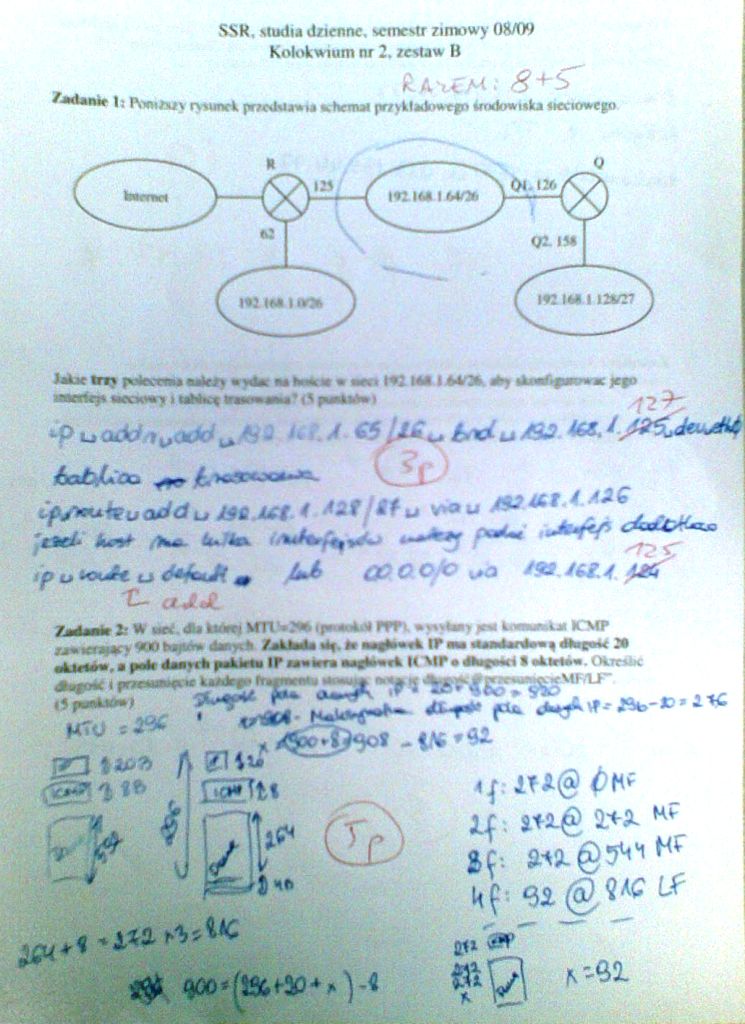 SSR, studia dzienne, semestr zimowy 08/09
Kolokwium nr 2, zestaw B
RAZEM: 8+5
Zadanie 1: Poniższy rysunek przedstawia schemat przykładowego środowiska sieciowego.
R
Q
Internet
125
192.168.1.64/26
Q1. 126
62
Q2. 158
192.168.1.0/26
192.168.1.128/27
Jakie trzy polecenia należy wydać na hoście w sieci 192.168.1.64/26, aby skonfigurować jego
interfejs sieciowy i tablicę trasowania? (5 punktów)
127
ip addr add 192.168.1.65/26 brd 192.168.1.125 dev eth0
3p
tablica trasowania
ip route add 192.168.1.128/27 via 192.168.1.126
jeżeli host ma kilka interfejsów należy podać interfejs dodatkowo
125
ip route default lub 0.0.0.0/0 via 192.168.1.124
add
Zadanie 2: W sieć, dla której MTU=296 (protokół PPP), wysyłany jest komunikat ICMP
zawierający 900 bajtów danych. Zakłada się, że nagłówek IP ma standardową długość 20
oktetów, a pole danych pakietu IP zawiera nagłówek ICMP o długości 8 oktetów. Określić
długość i przesunięcie każdego fragmentu stosując notację długość@przesunięcieMF/LF".
(5 punktów)
długość pola danych IP = 20+900 = 920
908 - Maksymalna długość pola danych IP = 296-20 = 276
MTU = 296
x 900+8 908 - 816 = 92
20B
20
ICMP 8B
ICMP 8
Dane
264
5p
1f: 272@0MF
2f: 272@272 MF
3f: 272@544 MF
4f: 92@816 LF
264+8=272 x3=816
272 ICMP
272
272
x
Dane
x=92
900=(296+20+x)-8